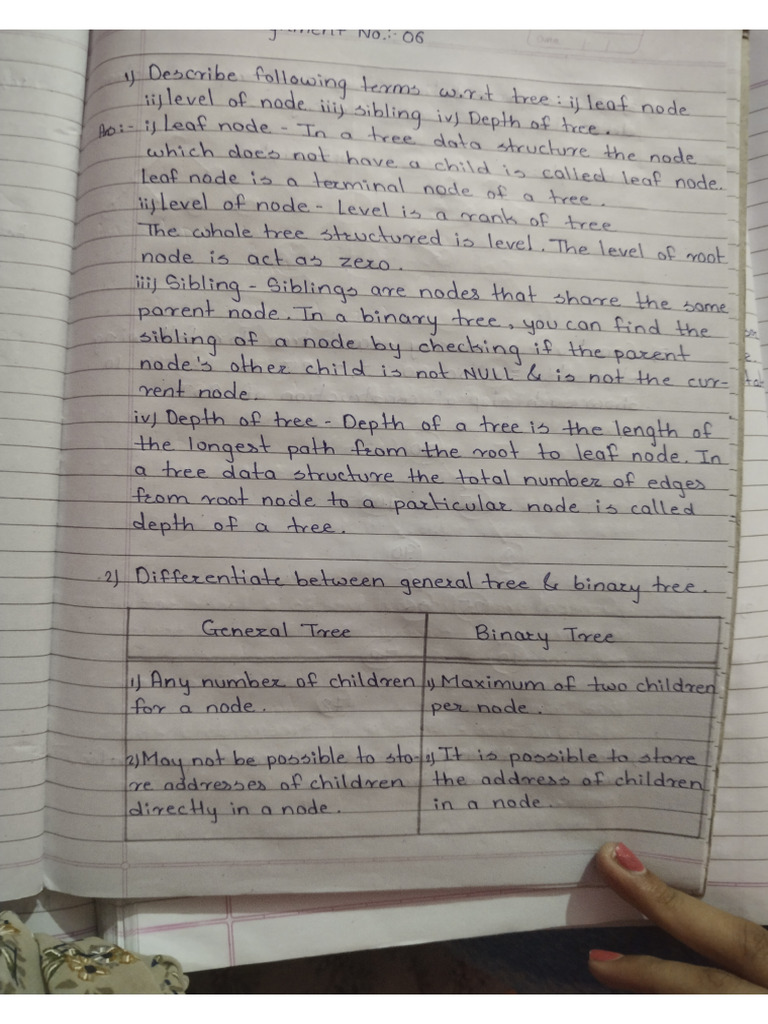 gnment No.:- 06
1) Describe following terms w.r.t tree: i) leaf node
ii) level of node iii) sibling iv) Depth of tree.
Ans:- i) Leaf node - In a tree data structure the node
which does not have a child is called leaf node.
Leaf node is a terminal node of a tree.
ii) Level of node - Level is a rank of tree
The whole tree structured is level. The level of root
node is act as zero.
iii) Sibling - Siblings are nodes that share the same
parent node. In a binary tree, you can find the
sibling of a node by checking if the parent
node's other child is not NULL & is not the cur-
rent node.
iv) Depth of tree - Depth of a tree is the length of
the longest path from the root to leaf node. In
a tree data structure the total number of edges
from root node to a particular node is called
depth of a tree.
2) Differentiate between general tree & binary tree.
General Tree
Binary Tree
1) Any number of children
for a node.
1) Maximum of two children
per node.
2) May not be possible to sto-
re addresses of children
directly in a node.
2) It is possible to store
the address of children
in a node.